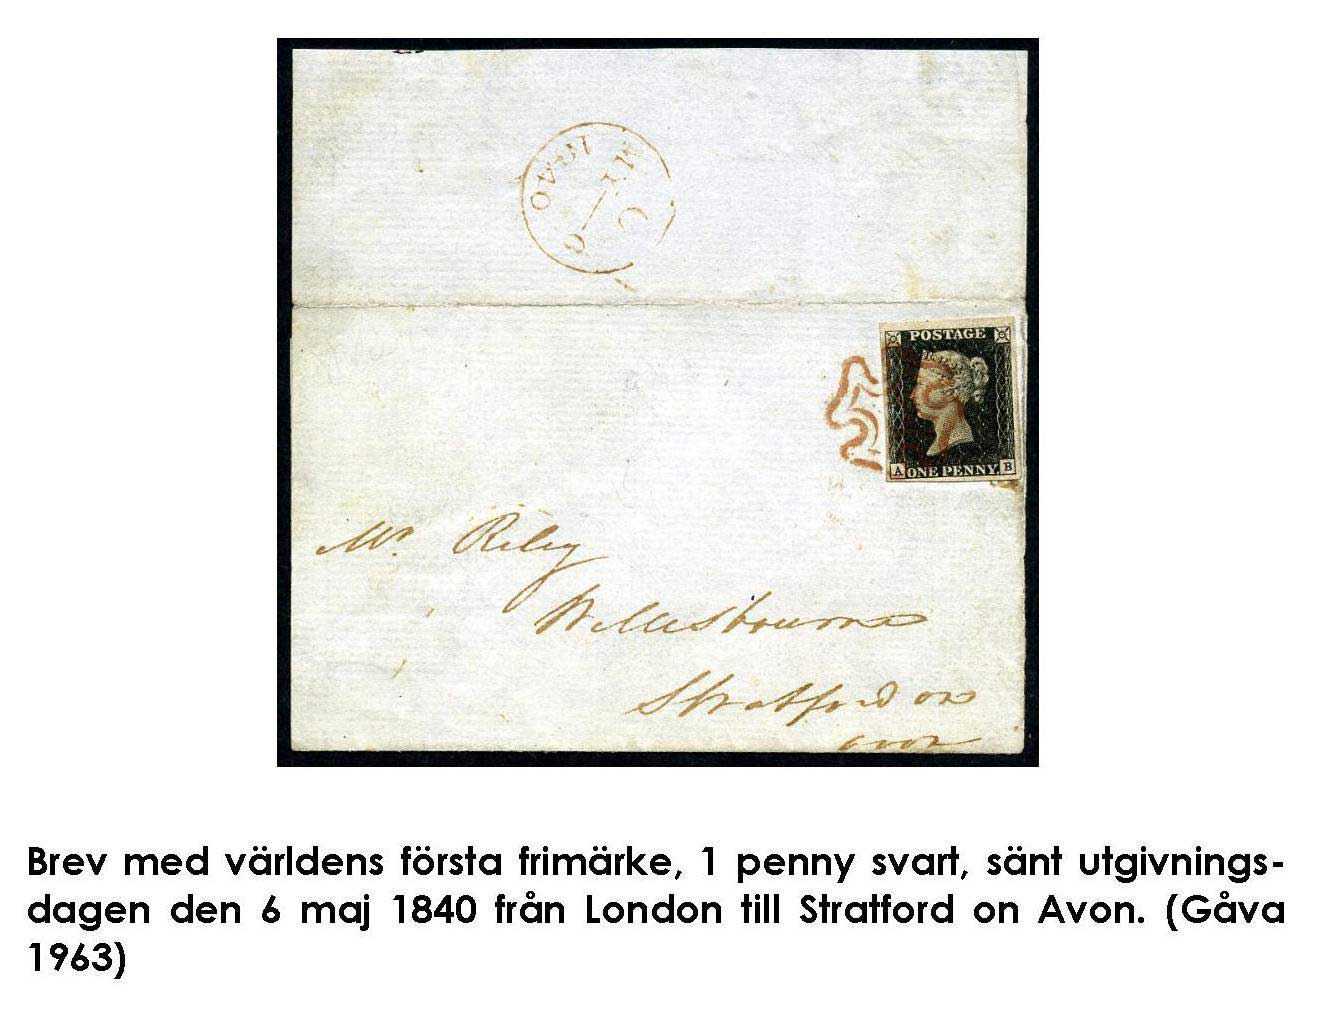 1840
MY
C
6
POSTAGE
A ONE PENNY B
Mr. Riley
Wellesbourne
Stratford on
avon
Brev med världens första frimärke, 1 penny svart, sänt utgivnings-
dagen den 6 maj 1840 från London till Stratford on Avon. (Gåva
1963)